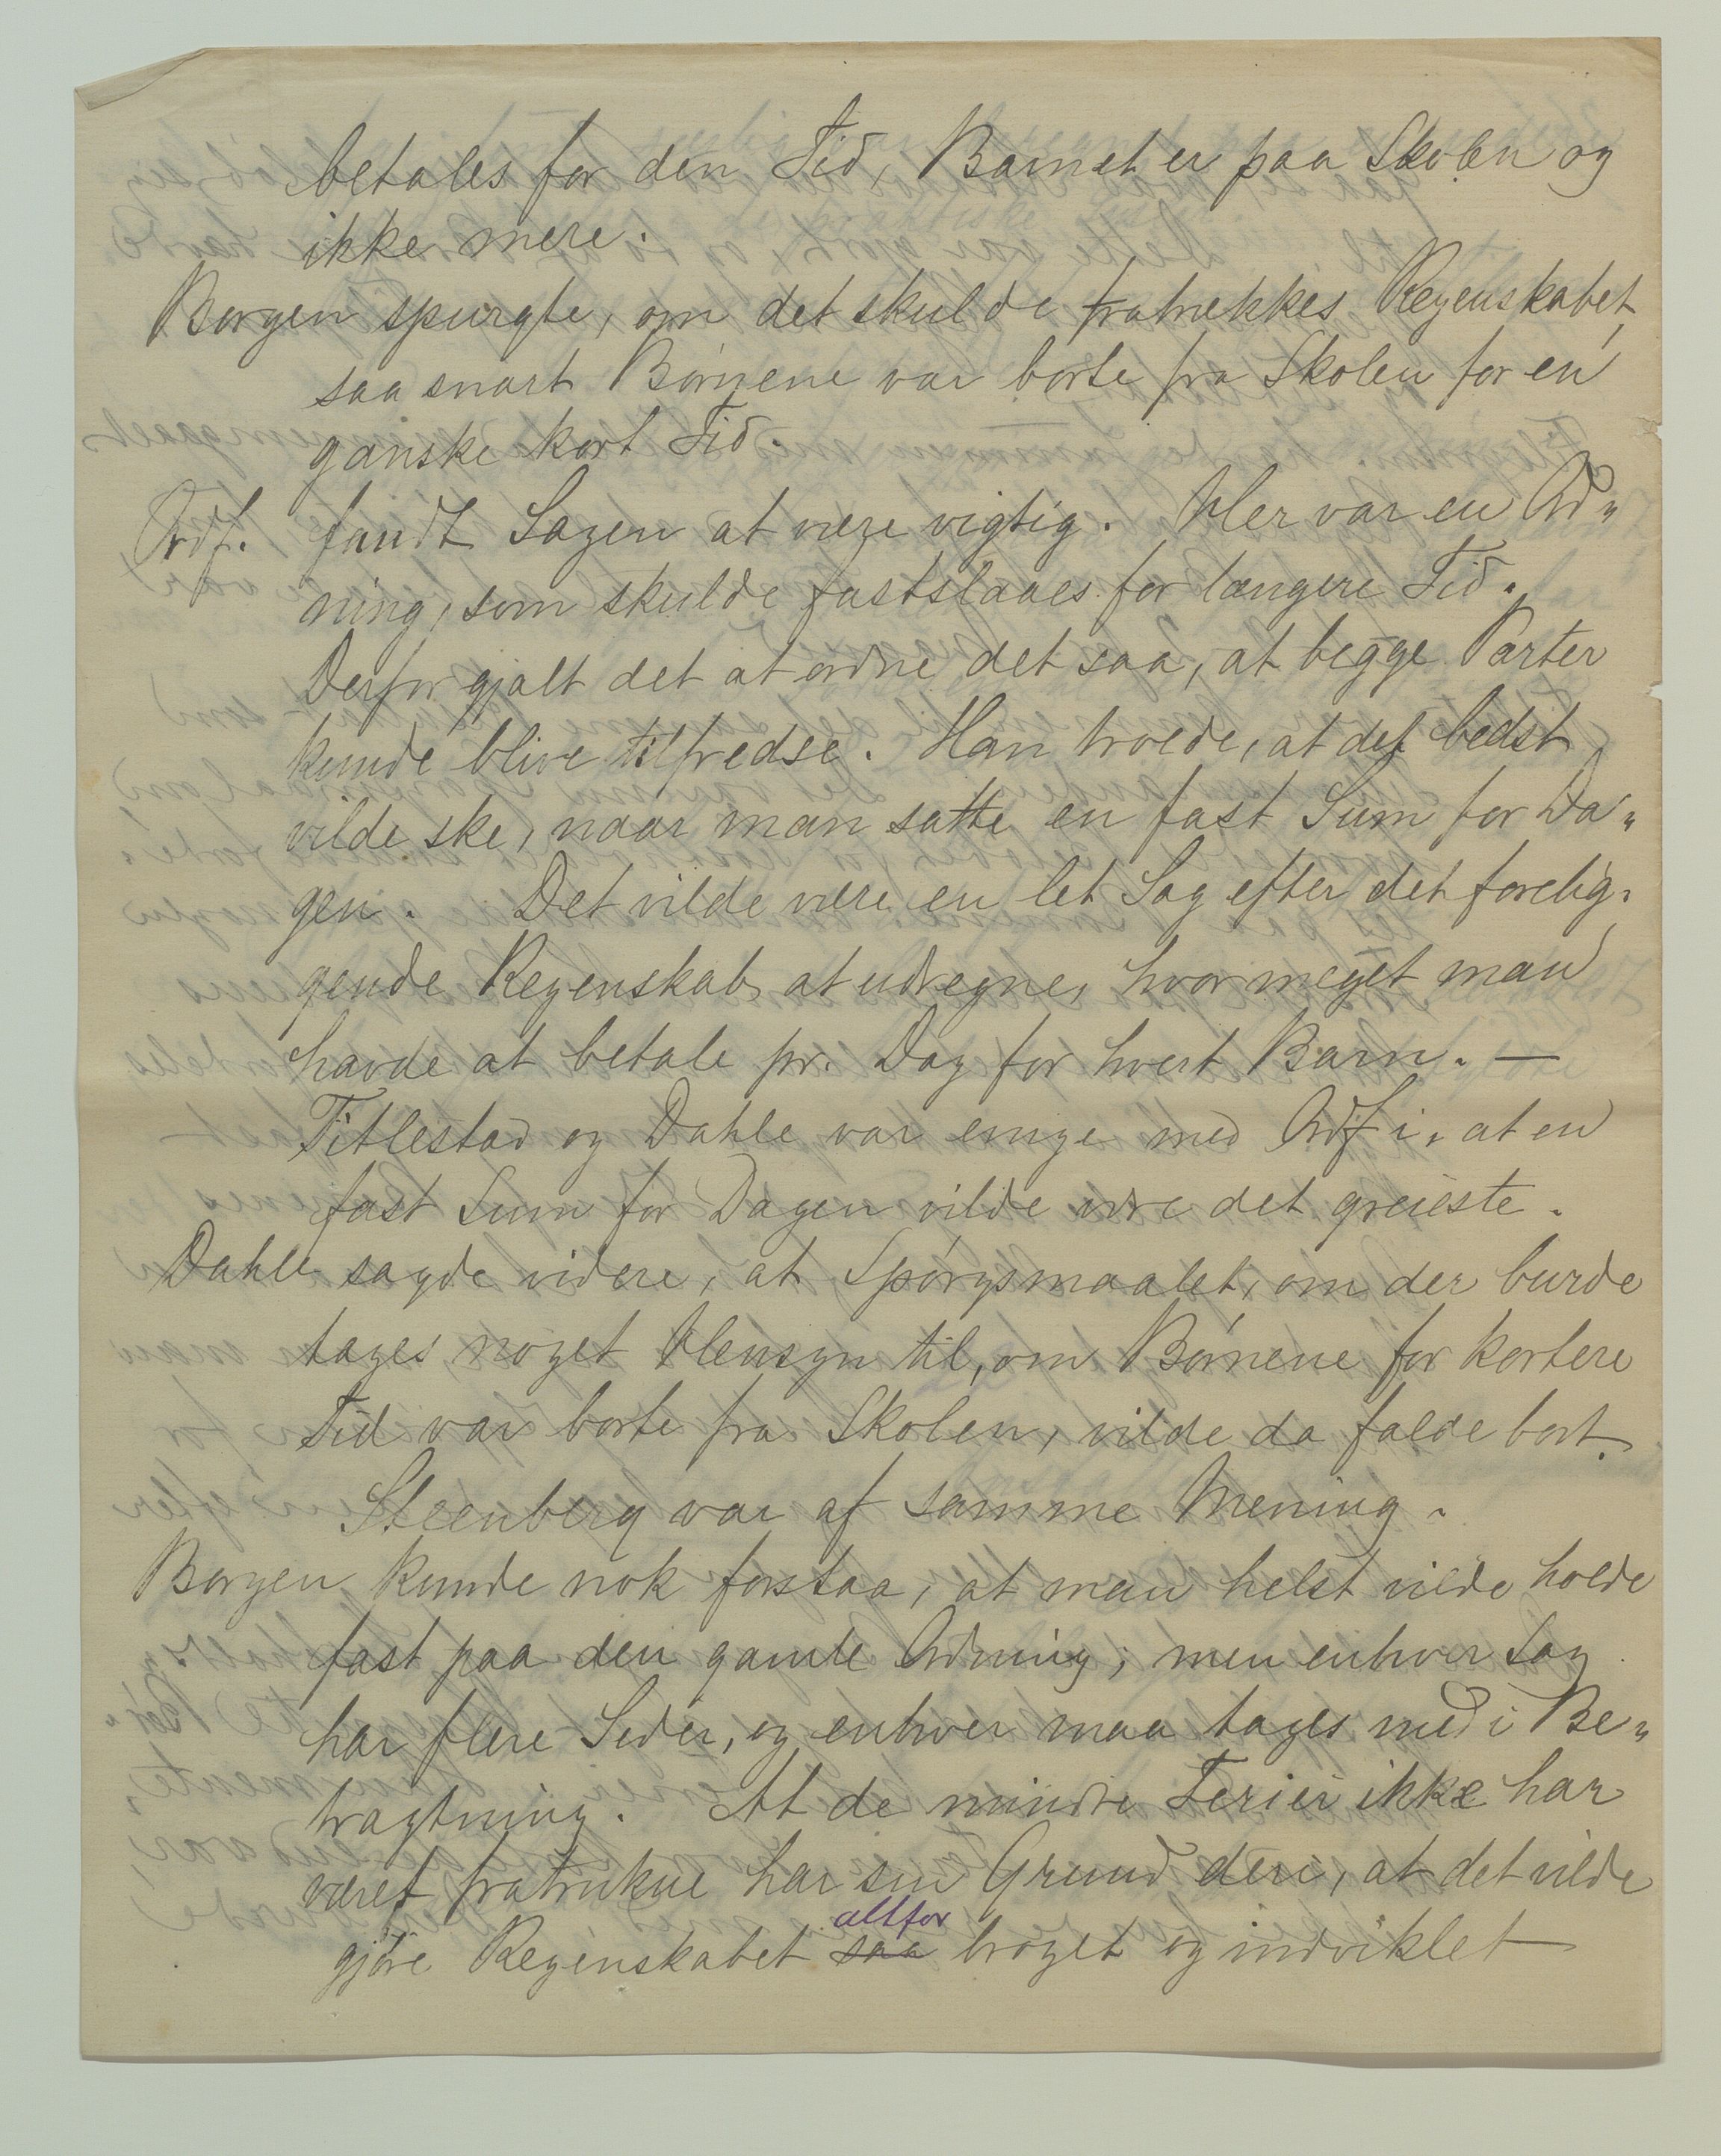 betales for den Tid, Barnet er paa Skolen og
ikke mere.
Borgen spurgte, om det skulde fratrekkes Regenskabet,
saa snart Børnene var borte fra Skolen for en
ganske kort Tid.
Ordf. fandt Sagen at være vigtig. Her var en Ord„
ning, som skulde fastslaaes for længere Tid.
Derfor gjalt det at ordne det saa, at begge Parter
kunde blive tilfredse. Han troede, at det bedst
vilde ske, naar man satte en fast Sum for Da„
gen. Det vilde være en let Sag efter det forelig„
gende Regenskab at udregne, hvor meget man
havde at betale pr. Dag for hvert Barn. —
Titlestad og Dahle var enige med Ordf i, at en
fast Sum for Dagen vilde være det greieste.
Dahle sagde videre, at Spørgsmaalet, om der burde
tages noget Hensyn til, om Børnene for kortere
Tid var borte fra Skolen, vilde da falde bort.
Steenberg var af samme Mening.
Borgen kunde nok forstaa, at man helst vilde holde
fast paa den gamle Ordning; men enhver Sag
har flere Sider, og enhver maa tages med i Be„
tragtning. At de mindre Ferier ikke har
været fratrukne har sin Grund deri, at det vilde
gjøre Regenskabet saa altfor broget og indviklet